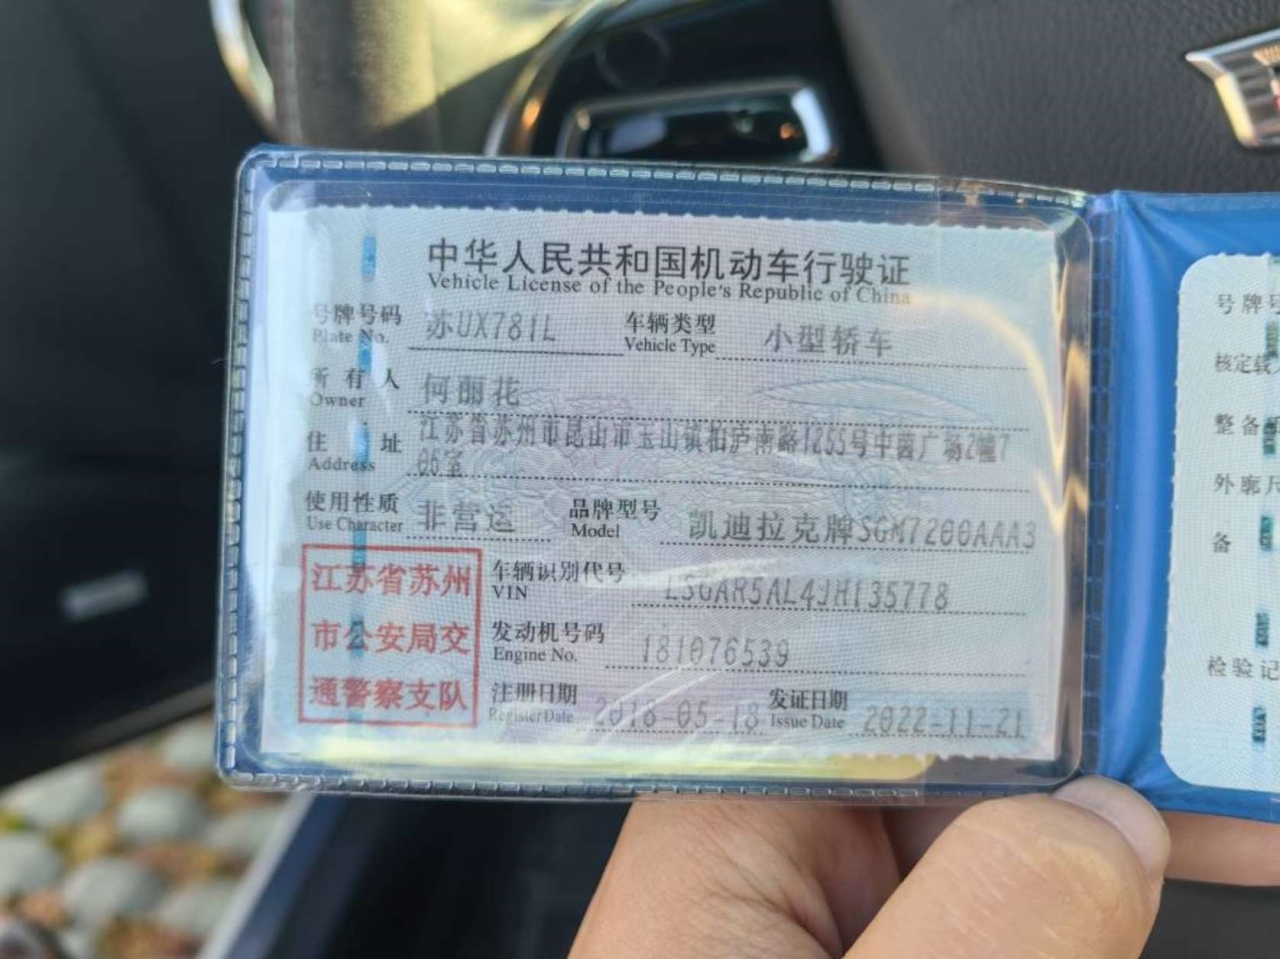 中华人民共和国机动车行驶证
Vehicle License of the People's Republic of China
号牌号码 苏UX781L 车辆类型 小型轿车
Plate No. Vehicle Type
所有人 何丽花
Owner
住址 江苏省苏州市昆山市玉山镇柏庐南路1255号中茵广场2幢7
Address 06室
使用性质 非营运 品牌型号 凯迪拉克牌SGM7200AAA3
Use Character Model
江苏省苏州
市公安局交
通警察支队
车辆识别代号 LSGAR5AL4JH135778
VIN
发动机号码 181076539
Engine No.
注册日期 2018-05-18 发证日期 2022-11-21
Register Date Issue Date
号牌号
核定载人
整备
外廓尺
备
检验记